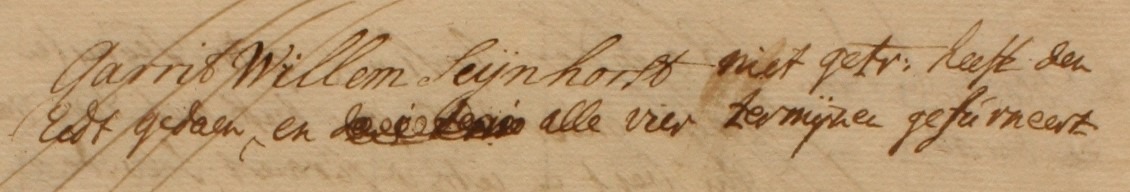 Garrit Willem Seijnhorst niet getr: heeft den
Eedt gedaen, en alle vier termijnen gefurneert